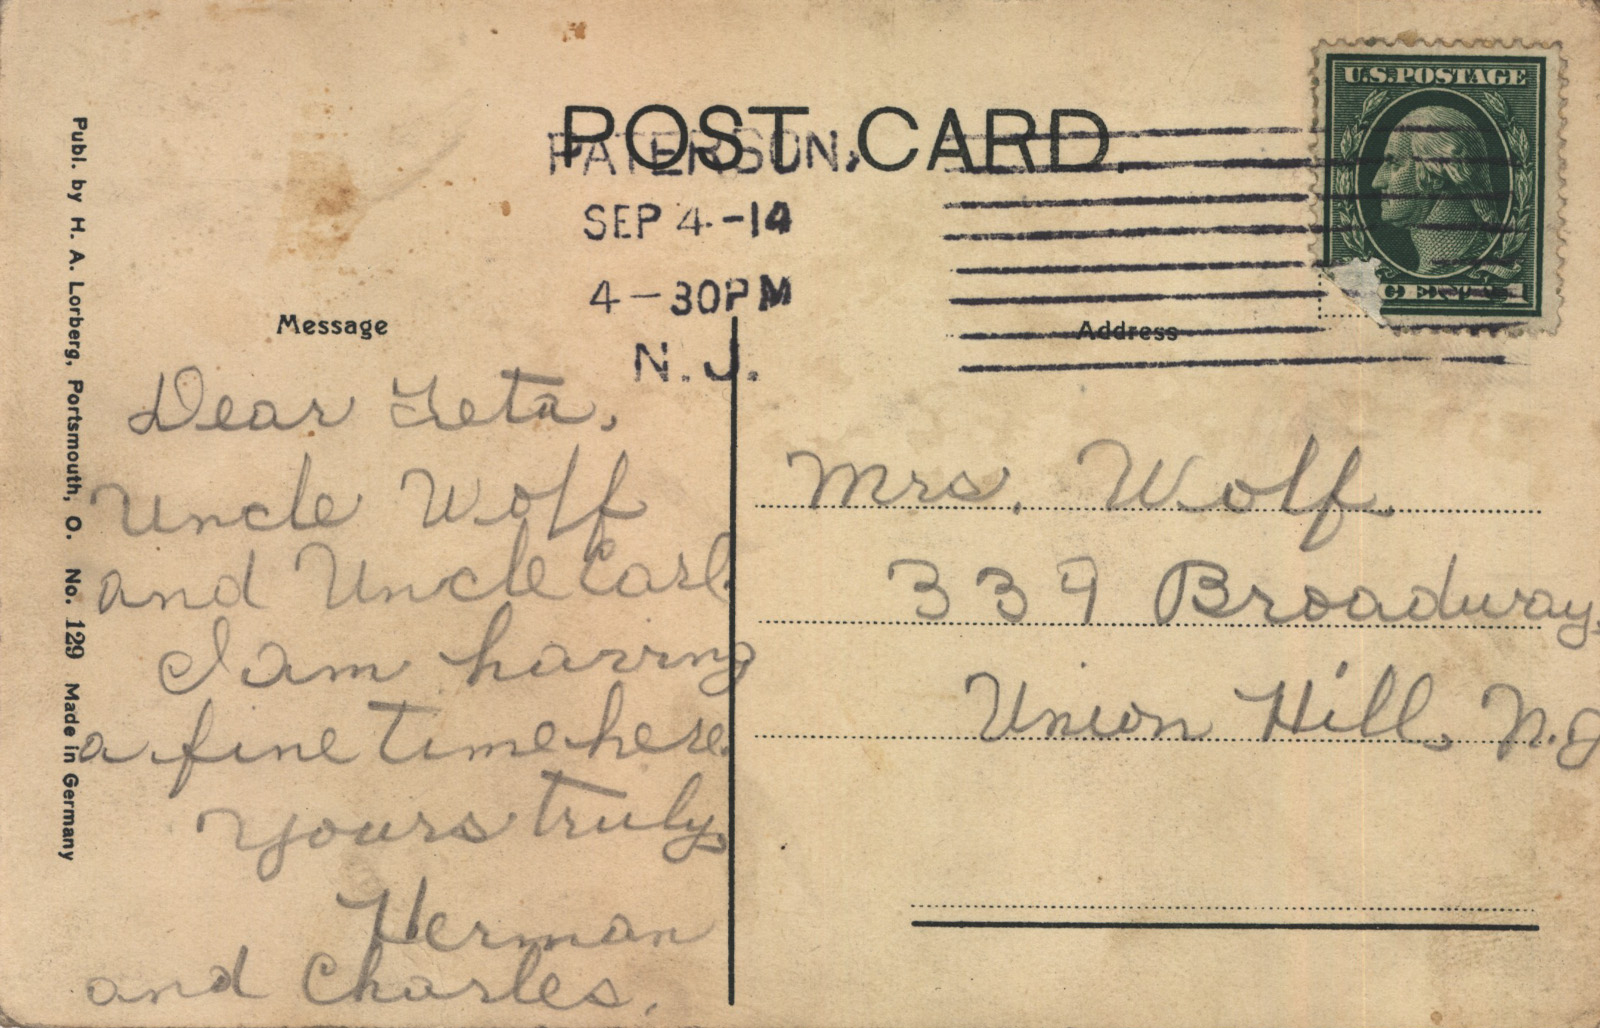 POST CARD.
PATERSON,
SEP 4-14
4-30PM
N.J.
U.S. POSTAGE
Publ. by H. A. Lorberg, Portsmouth, O. No. 129 Made in Germany
Message
Dear Teta,
Uncle Wolf
and Uncle Carl.
I am having
a fine time here.
Yours truly,
Herman
and Charles.
Address
Mrs. Wolf.
339 Broadway.
Union Hill, N.J